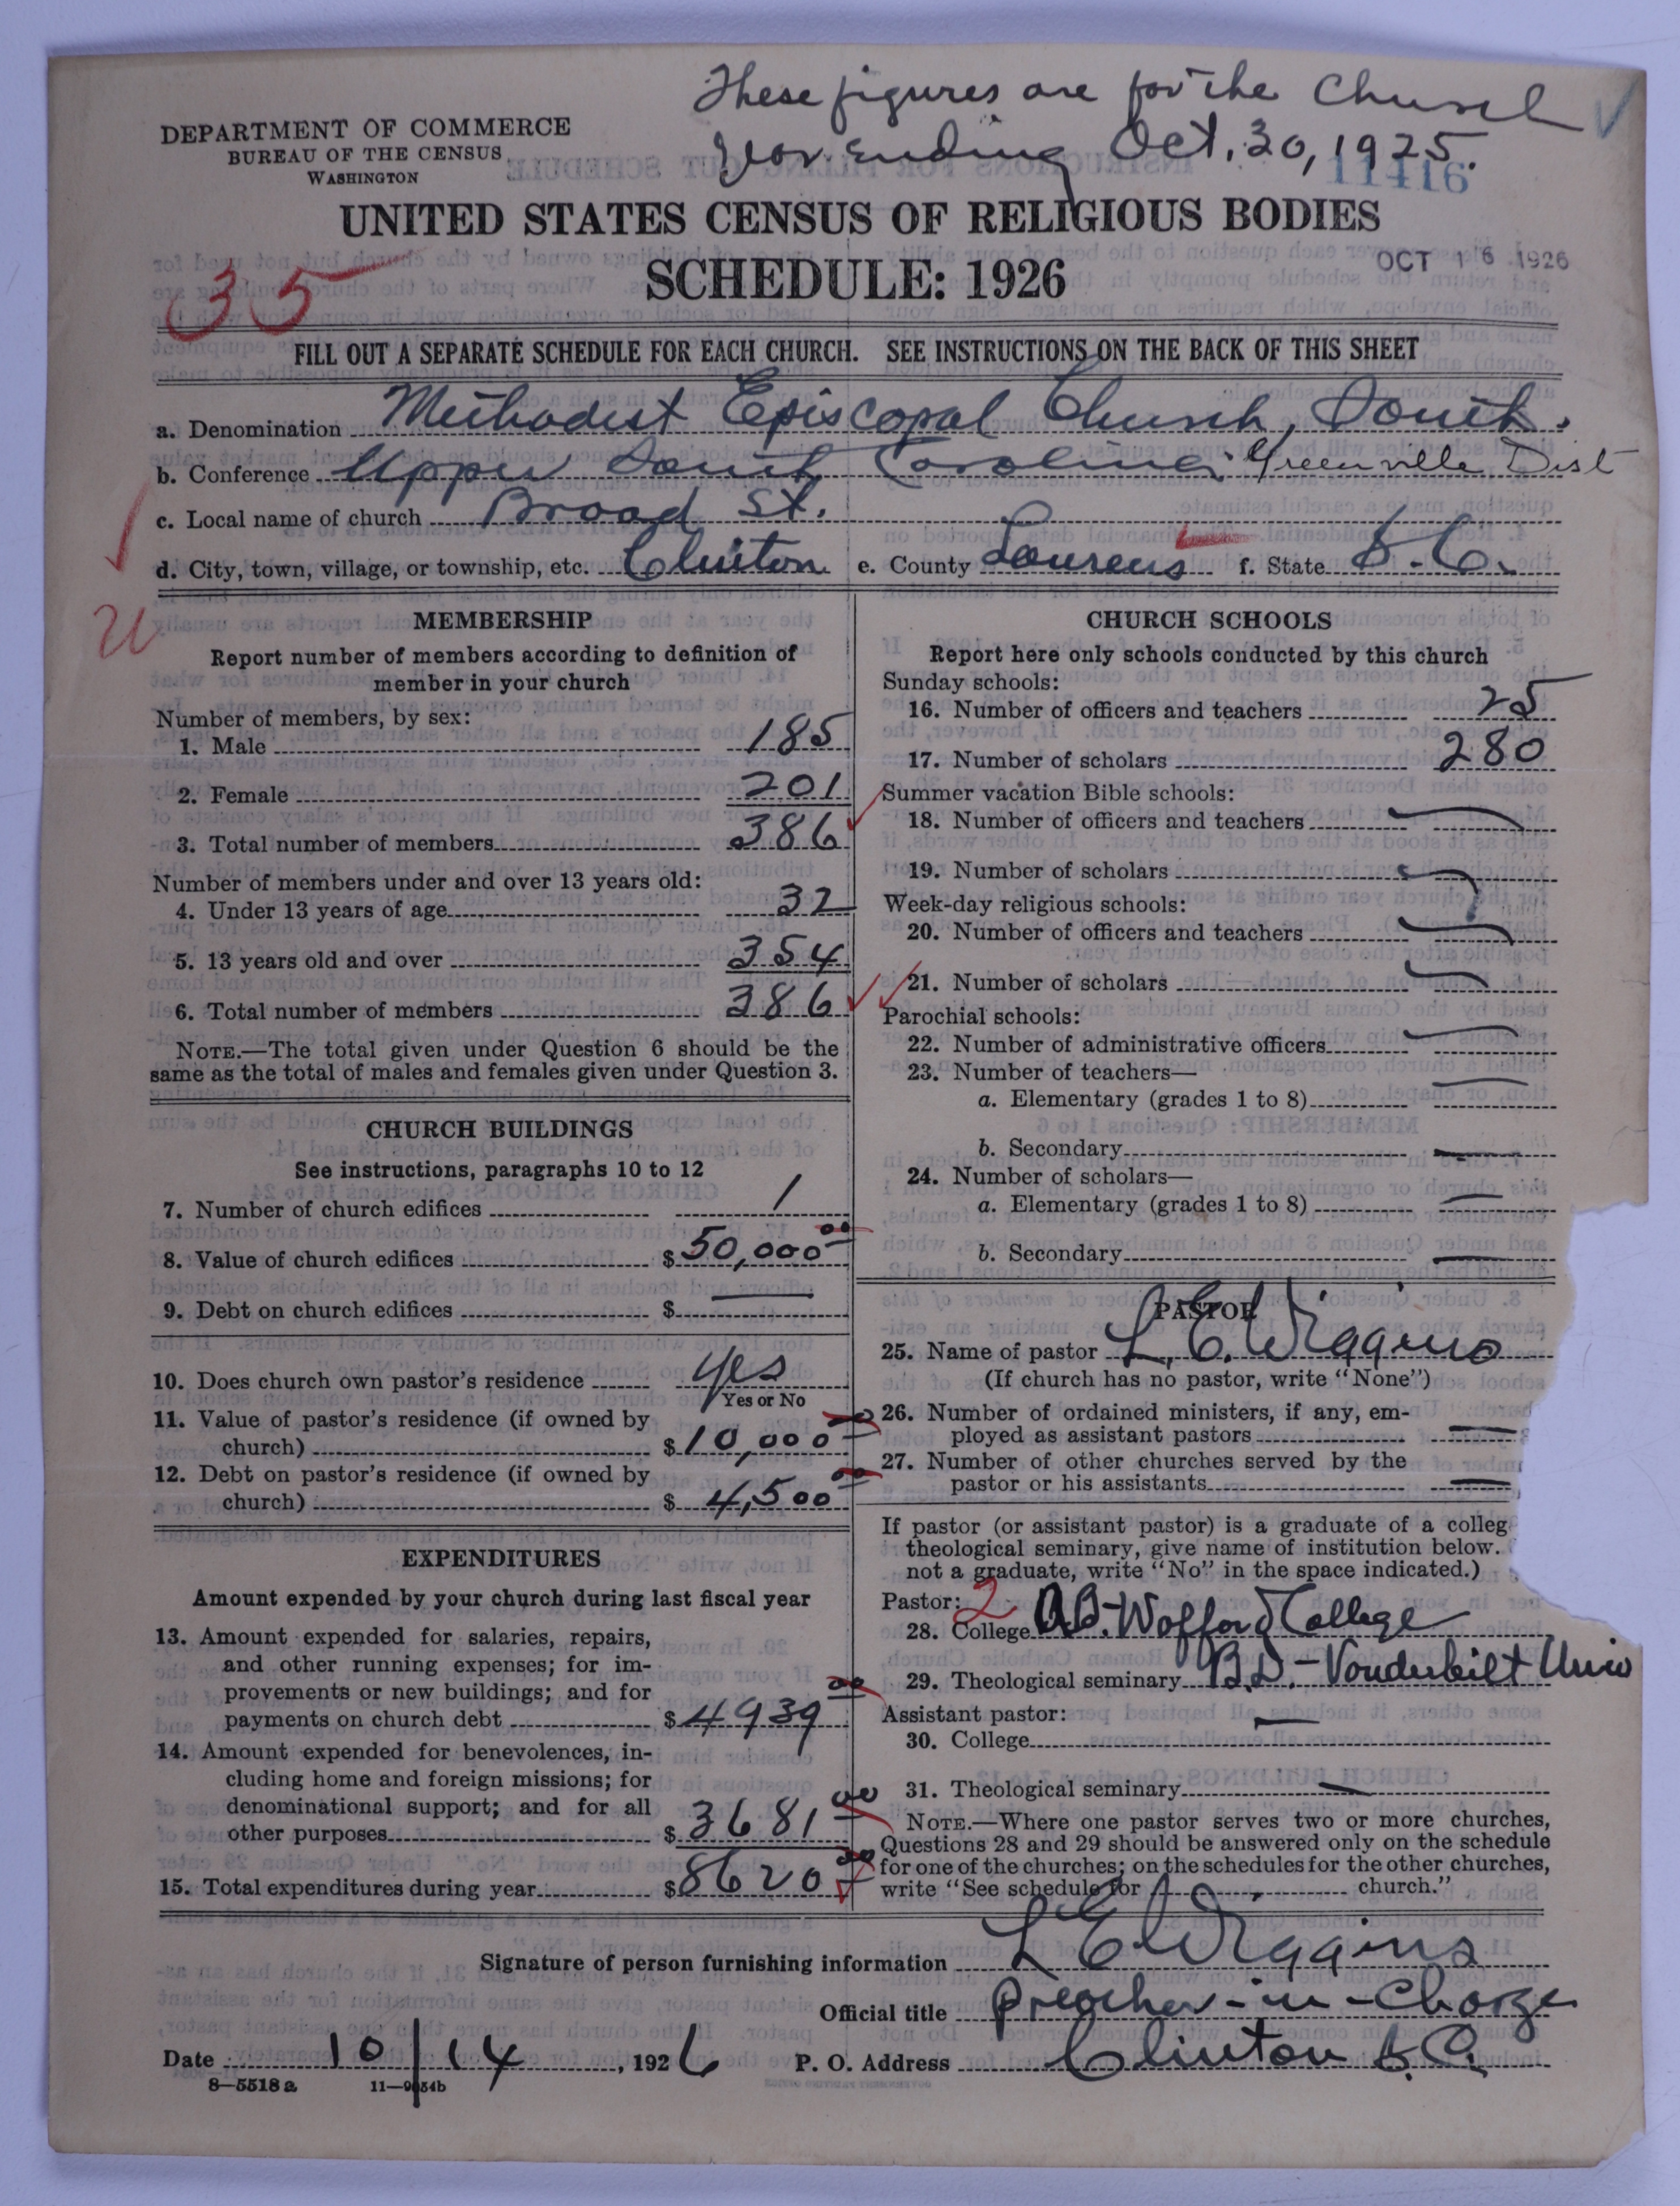 These figures are for the Church
year ending Oct. 30, 1925.
DEPARTMENT OF COMMERCE
BUREAU OF THE CENSUS
WASHINGTON
11416
UNITED STATES CENSUS OF RELIGIOUS BODIES
SCHEDULE: 1926
OCT 16 1926
35
FILL OUT A SEPARATE SCHEDULE FOR EACH CHURCH. SEE INSTRUCTIONS ON THE BACK OF THIS SHEET
a. Denomination Methodist Episcopal Church, South.
b. Conference Upper South Carolina Greenville Dist
c. Local name of church Broad St.
d. City, town, village, or township, etc. Clinton e. County Laurens f. State S.C.
MEMBERSHIP
Report number of members according to definition of
member in your church
Number of members, by sex:
1. Male 185
2. Female 201
3. Total number of members 386
Number of members under and over 13 years old:
4. Under 13 years of age 32
5. 13 years old and over 354
6. Total number of members 386
NOTE.—The total given under Question 6 should be the
same as the total of males and females given under Question 3.
CHURCH BUILDINGS
See instructions, paragraphs 10 to 12
7. Number of church edifices 1
8. Value of church edifices $50,000 00
9. Debt on church edifices $ —
10. Does church own pastor's residence yes
Yes or No
11. Value of pastor's residence (if owned by
church) $10,000 00
12. Debt on pastor's residence (if owned by
church) $ 4,500 00
EXPENDITURES
Amount expended by your church during last fiscal year
13. Amount expended for salaries, repairs,
and other running expenses; for im-
provements or new buildings; and for
payments on church debt $4939 00
14. Amount expended for benevolences, in-
cluding home and foreign missions; for
denominational support; and for all
other purposes $3681 00
15. Total expenditures during year $8620 00
CHURCH SCHOOLS
Report here only schools conducted by this church
Sunday schools:
16. Number of officers and teachers 25
17. Number of scholars 280
Summer vacation Bible schools:
18. Number of officers and teachers —
19. Number of scholars —
Week-day religious schools:
20. Number of officers and teachers —
21. Number of scholars —
Parochial schools:
22. Number of administrative officers —
23. Number of teachers—
a. Elementary (grades 1 to 8) —
b. Secondary —
24. Number of scholars—
a. Elementary (grades 1 to 8) —
b. Secondary —
PASTOR
25. Name of pastor L. E. Wiggins
(If church has no pastor, write "None")
26. Number of ordained ministers, if any, em-
ployed as assistant pastors —
27. Number of other churches served by the
pastor or his assistants —
If pastor (or assistant pastor) is a graduate of a colleg
theological seminary, give name of institution below.
not a graduate, write "No" in the space indicated.)
Pastor: 2
28. College A.B. - Wofford College
29. Theological seminary B.D. - Vanderbilt Univ
Assistant pastor:
30. College —
31. Theological seminary —
NOTE.—Where one pastor serves two or more churches,
Questions 28 and 29 should be answered only on the schedule
for one of the churches; on the schedules for the other churches,
write "See schedule for church."
Signature of person furnishing information L E Wiggins
Official title Preacher-in-Charge
Date 10/14, 1926 P. O. Address Clinton S.C.
8—5518 a 11—9054b